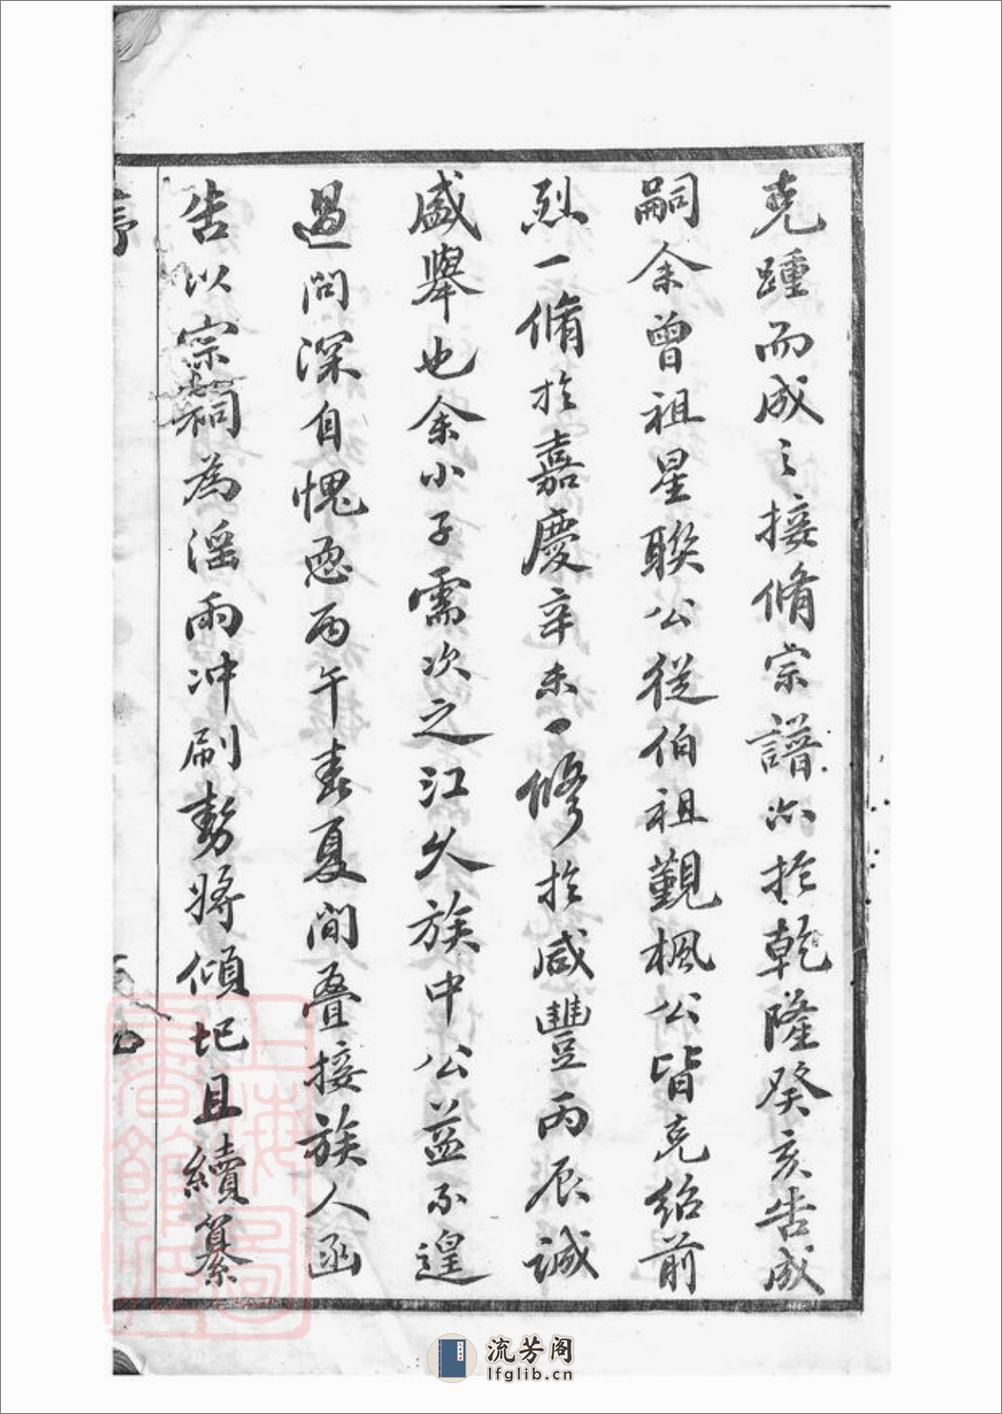 克踵而成之接脩宗譜亦於乾隆癸亥告成
嗣余曾祖星聯公從伯祖觀楓公皆克紹前
烈一脩於嘉慶辛未一修於咸豐丙辰誠
盛舉也余小子需次之江久族中公益不遑
過問深自愧恧丙午春夏間疊接族人函
告以宗祠為淫雨沖刷勢將傾圮且續纂
序
上海圖書館藏
流芳阁
lfglib.cn